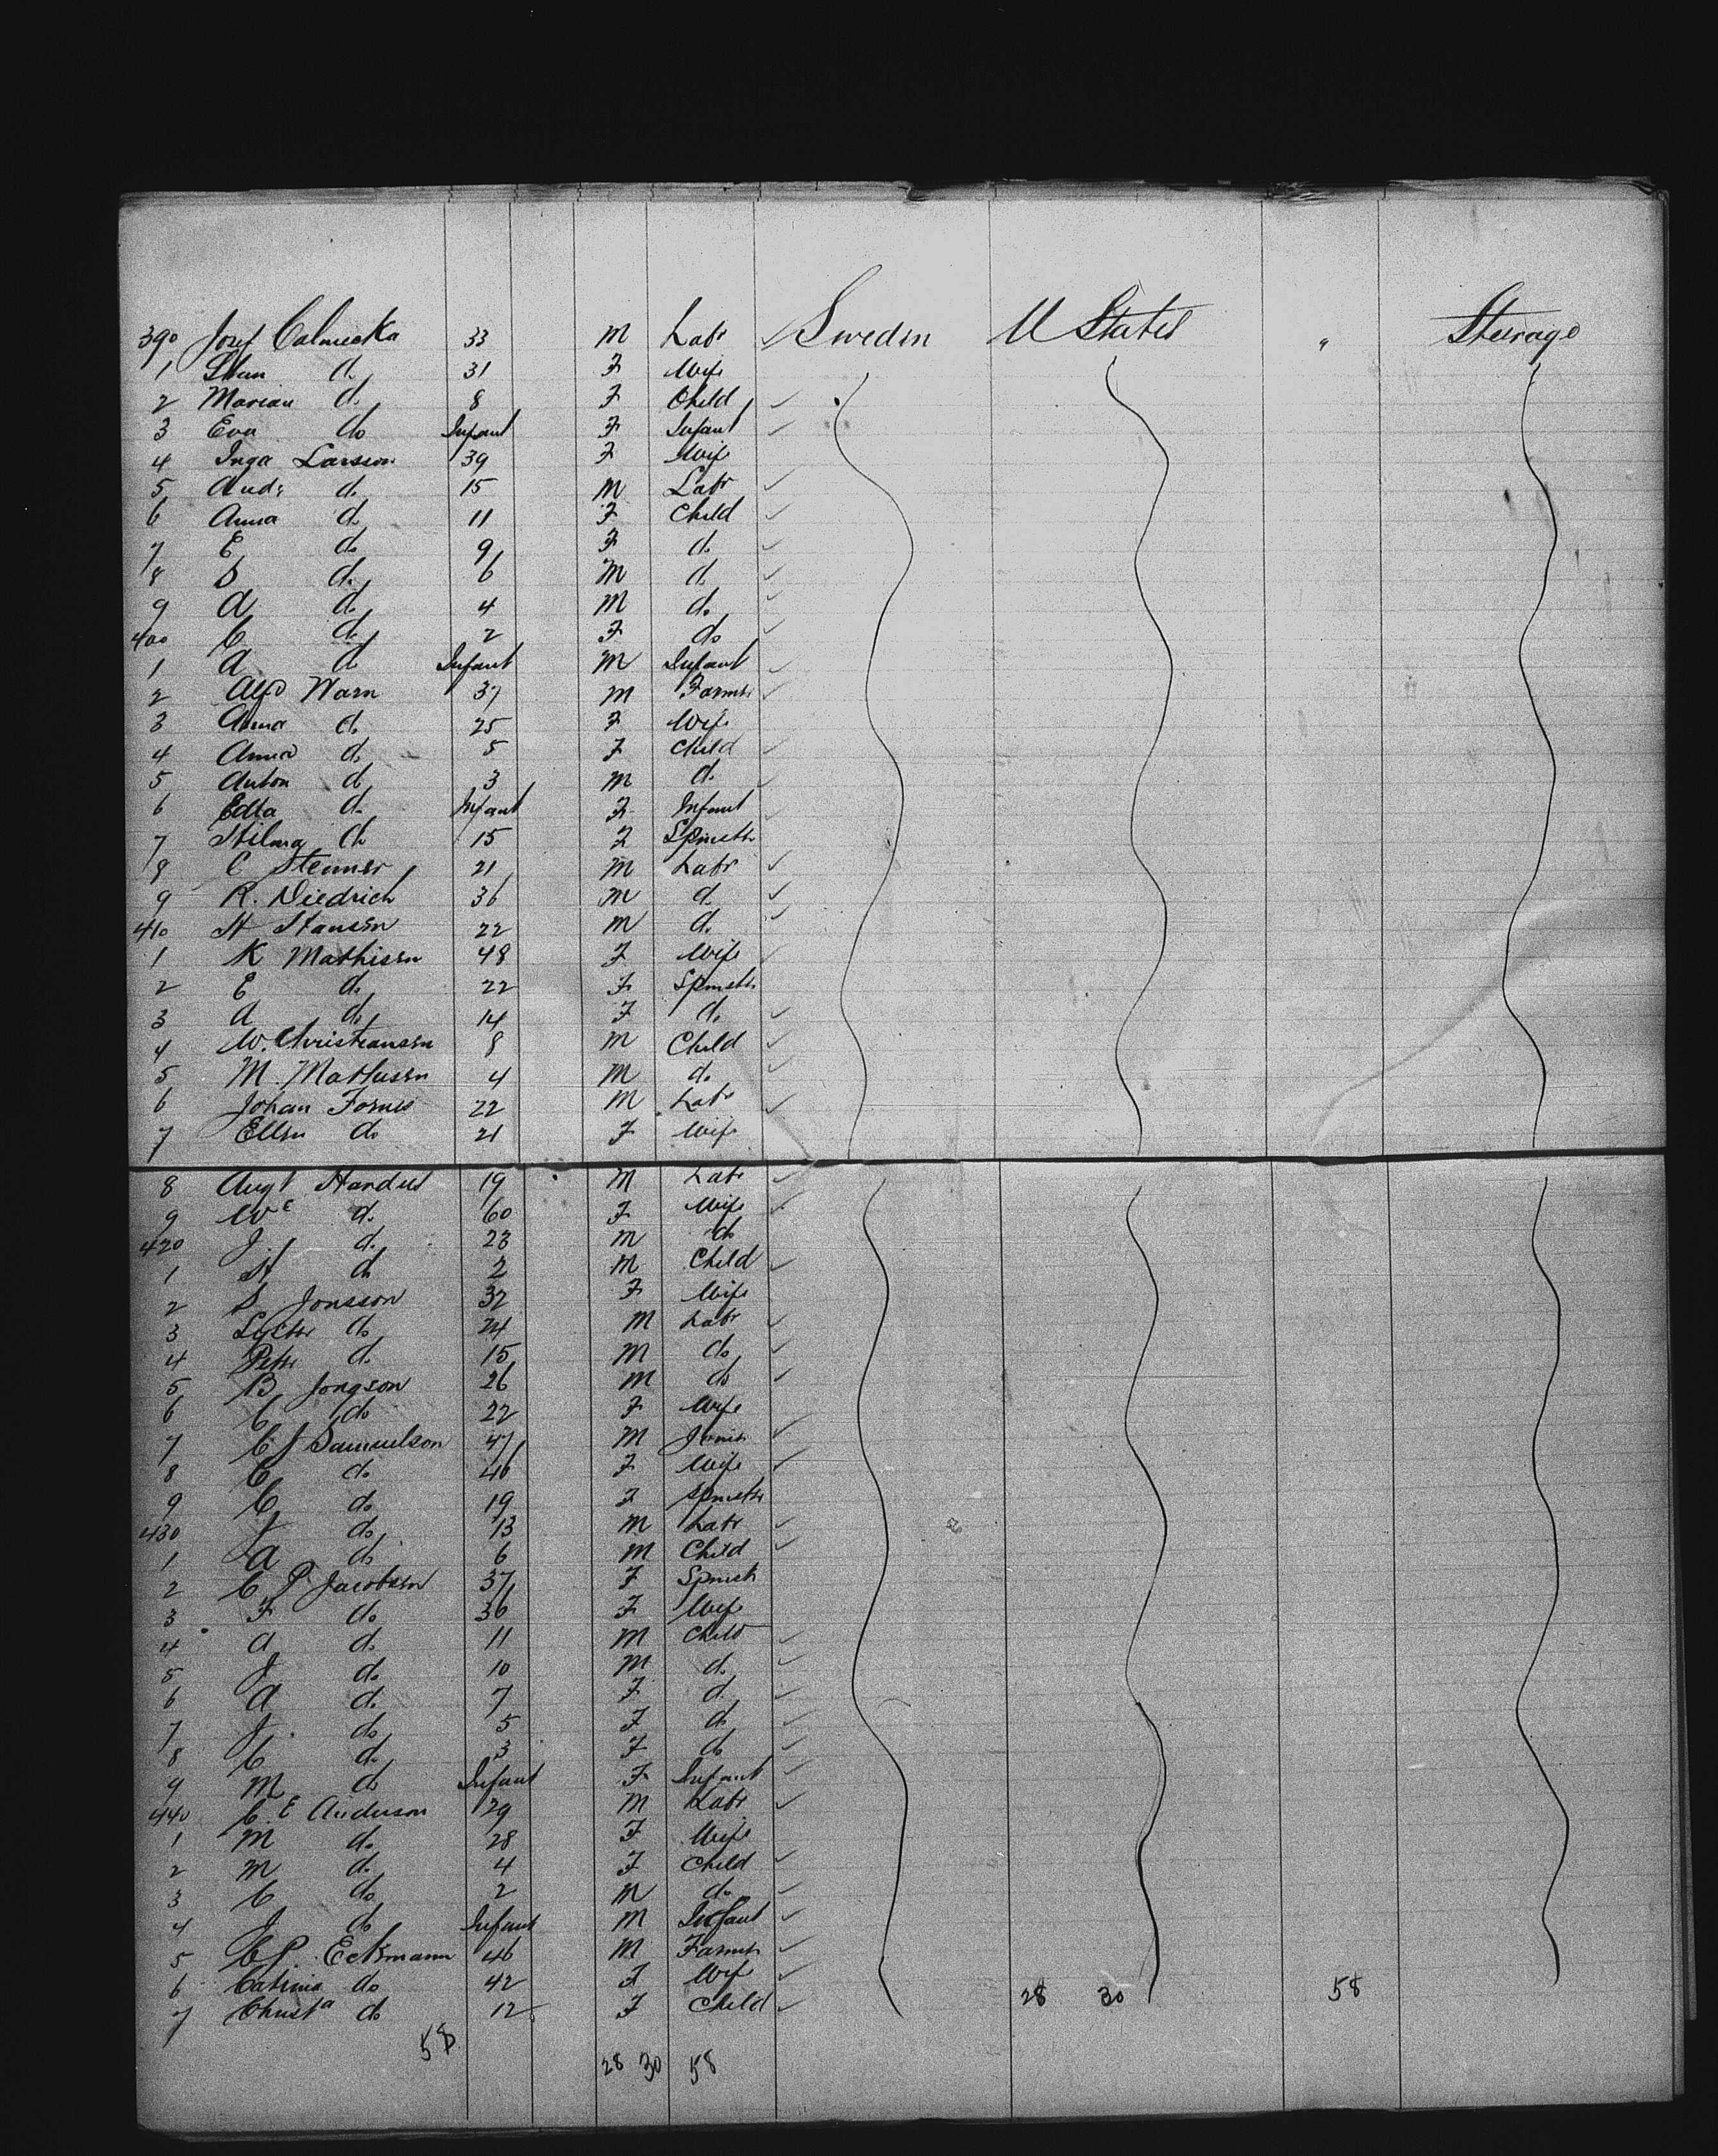 390 Josef Calmecka 33 M Labr Sweden U States " Steerage
1 do 31 F Wife
2 Marian do 8 F Child
3 Eva do Infant F Infant
4 Inga Larsson 39 F Wife
5 Andr do 15 M Labr
6 Anna do 11 F Child
7 E do 9 F do
8 S do 6 M do
9 A do 4 M do
400 C do 2 F do
1 A do Infant M Infant
2 Alfd Warn 37 M Farmr
3 Anna do 25 F Wife
4 Anna do 5 F Child
5 Anton do 3 M do
6 Edla do Infant F Infant
7 Hilma do 15 F Spinstr
8 C Stenner 21 M Labr
9 R. Diedrich 36 M do
410 H Hansen 22 M do
1 K Mathisen 48 F Wife
2 E do 22 F Spinstr
3 A do 14 F do
4 W. Christiansen 8 M Child
5 M. Mathisen 4 M do
6 Johan Fornes 22 M Labr
7 Ellen do 21 F Wife
8 Augt Handus 19 M Labr
9 We do 60 F Wife
420 J do 23 M do
1 H do 2 M Child
2 S. Jonsson 32 F Wife
3 do 24 M Labr
4 Petr do 15 M do
5 B Jongson 26 M do
6 C do 22 F Wife
7 C J Samuelson 47 M Joinr
8 C do 46 F Wife
9 C do 19 F Spinstr
430 J do 13 M Labr
1 A do 6 M Child
2 C P Jacobsen 37 F Spinstr
3 F do 36 F Wife
4 A do 11 M Child
5 J do 10 M do
6 A do 7 F do
7 J. do 5 F do
8 C do 3 F do
9 M do Infant F Infant
440 C. E Anderson 29 M Labr
1 M do 28 F Wife
2 M do 4 F Child
3 C do 2 M do
4 J do Infant M Infant
5 C P. Eckmann 46 M Farmr
6 Catrina do 42 F Wife 28 30 58
7 Christa do 12 F Child
58 28 30 58